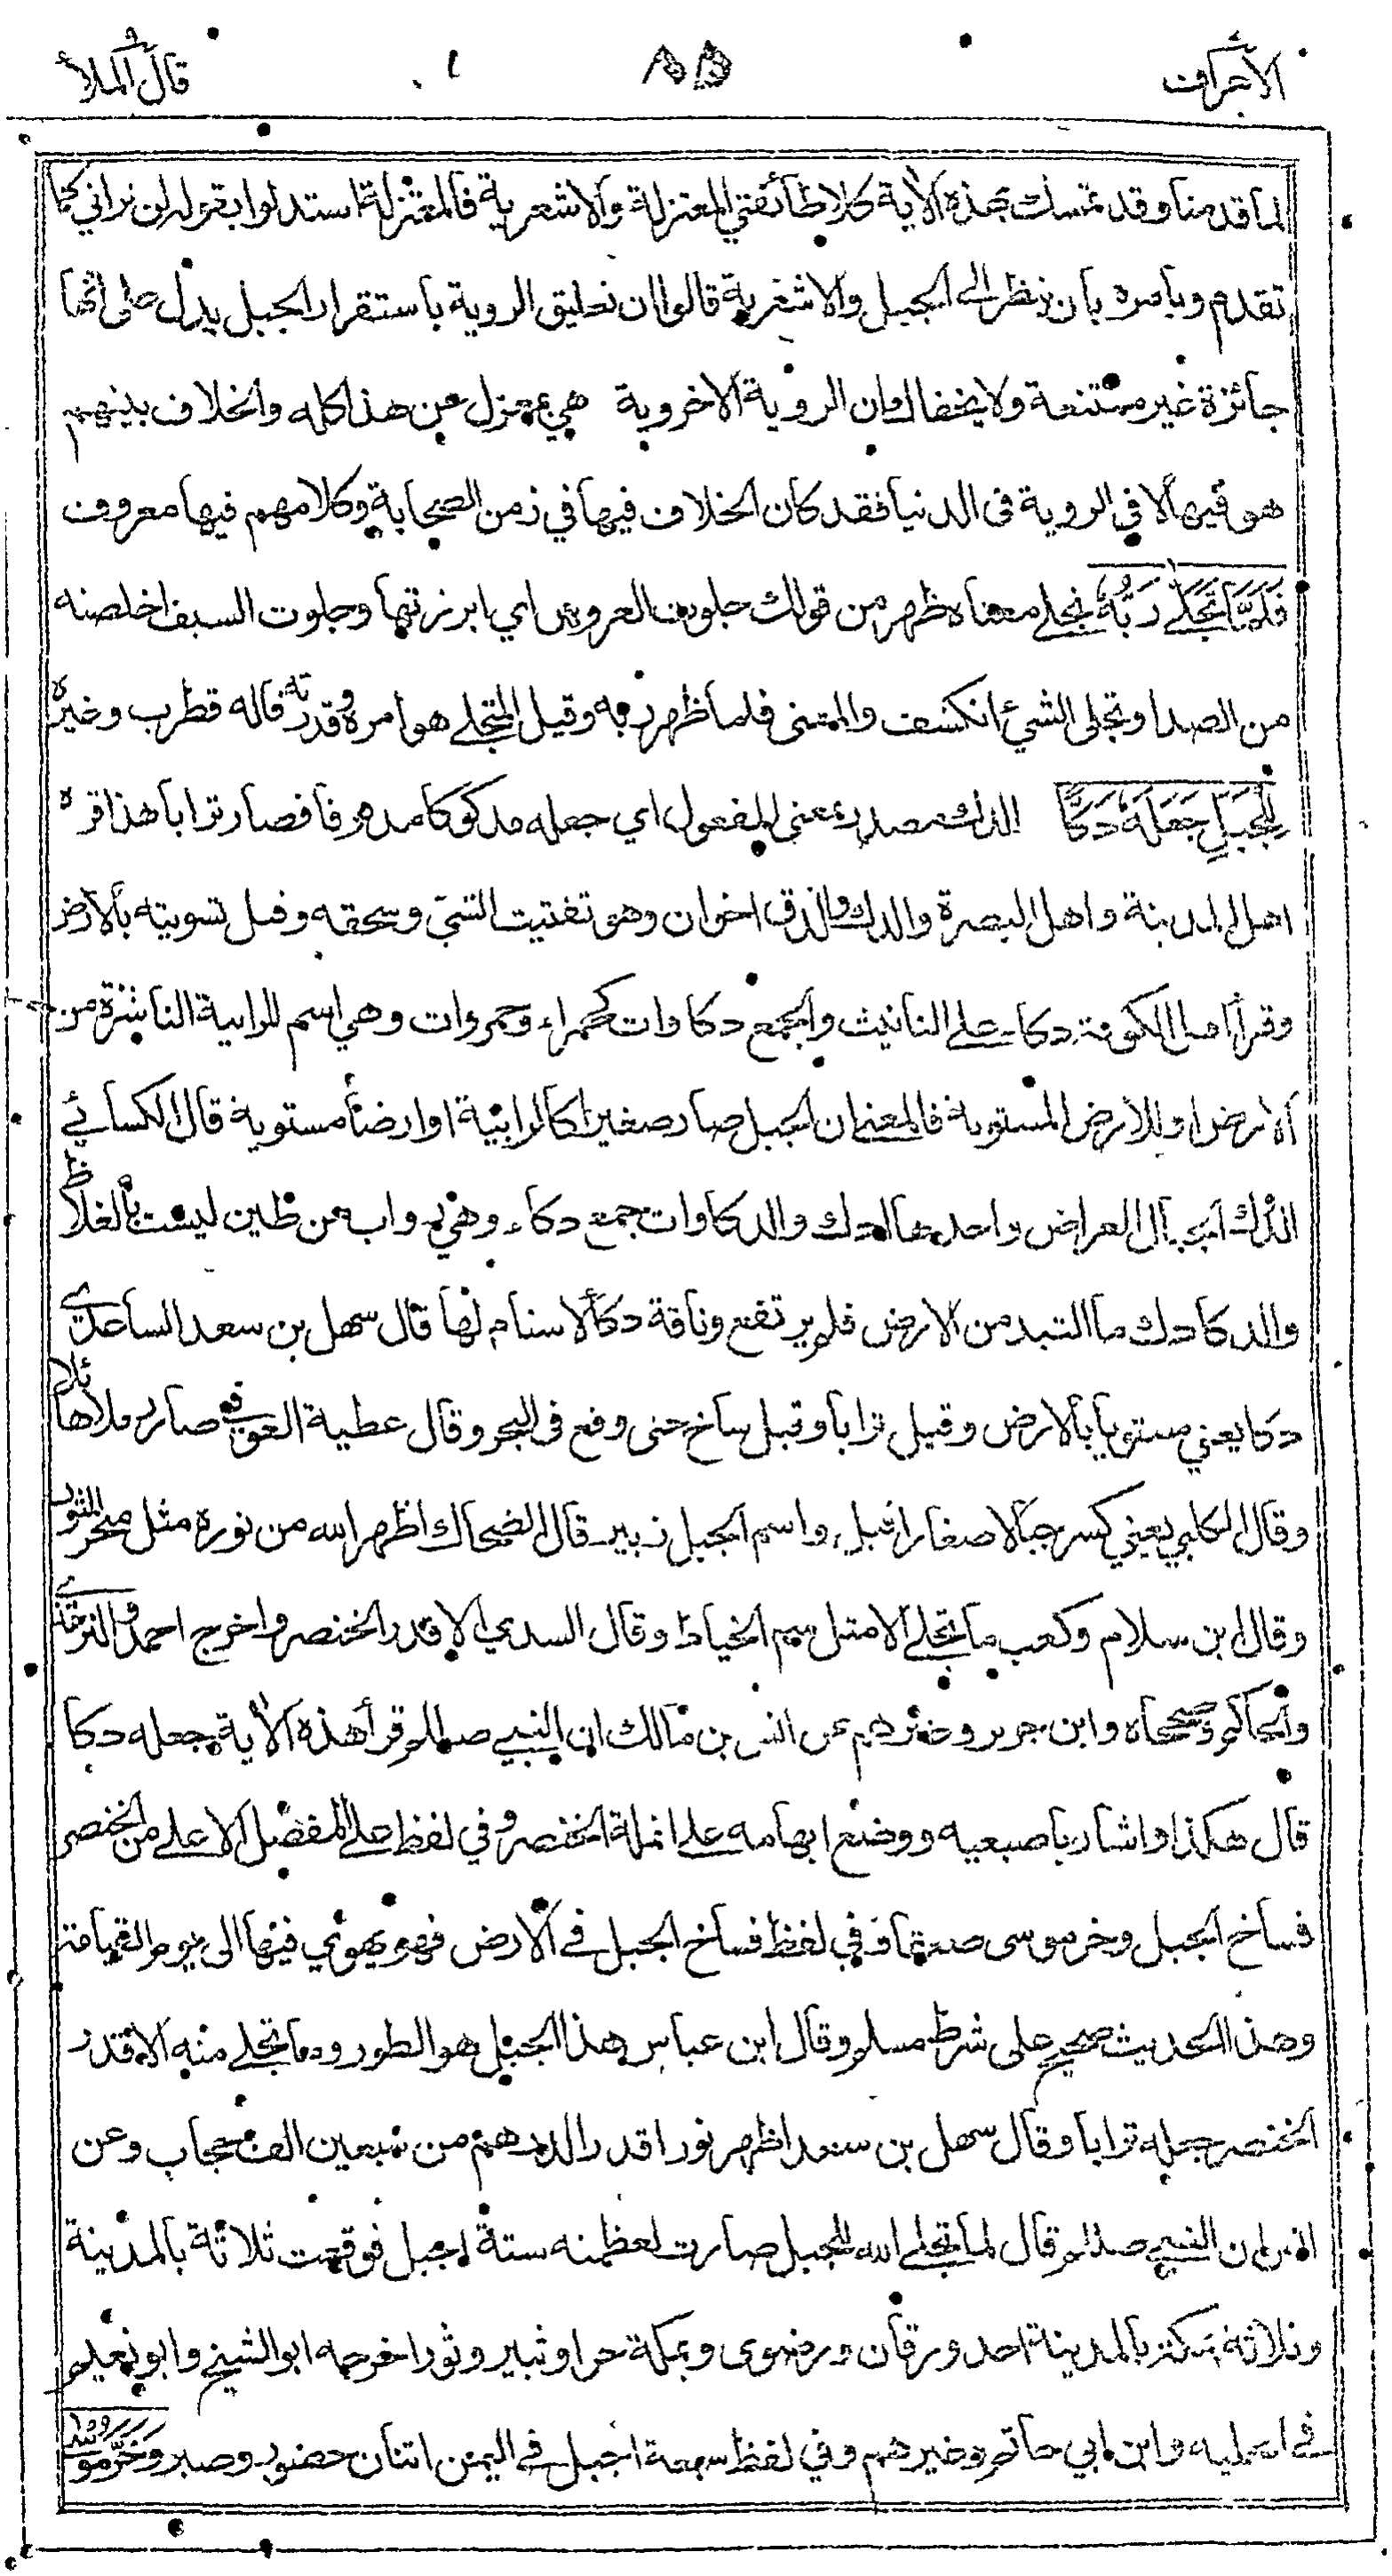 الاعراف ٨٥ قال الملأ
لما قدمنا وقد تمسك بهذه الآية كلا طائفتي المعتزلة والاشعرية فالمعتزلة استدلوا بقوله لن تراني كما
تقدم وبأمره بأن ينظر الى الجبل والاشعرية قالوا ان تعليق الروية باستقرار الجبل يدل على انها
جائزة غير ممتنعة ولا يخفاك وان الروية الاخروية هي بمعزل عن هذا كله والخلاف بينهم
هو فيها لا في الروية فى الدنيا فقد كان الخلاف فيها في زمن الصحابة وكلامهم فيها معروف
فَلَمَّا تَجَلَّى رَبُّهُ تجلى معناه ظهر من قولك جلوت العروس اي ابرزتها وجلوت السيف اخلصته
من الصدا وتجلى الشيء انكشف والمعنى فلما ظهر ربه وقيل المتجلي هو امره وقدرته قاله قطرب وغيره
لِلْجَبَلِ جَعَلَهُ دَكًّا الدك مصدر بمعنى المفعول اي جعله مدكوكا مدقوقا فصار ترابا هذا قره
اهل المدينة واهل البصرة والدك والدق اخوان وهو تفتيت الشيء وسحقه وقيل تسويته بالارض
وقرأ اهل الكوفة دكاء على التانيث والجمع دكاوات كحمراء وحمروات وهي اسم للرابية الناشزة من
الارض او للارض المستوية فالمعنى ان الجبل صار صغيرا كالرابية او ارضا مستوية قال الكسائي
الدك الجبال العراض واحدها ادك والدكاوات جمع دكاء وهي رواب من طين ليست بالغلاظ
والدكادك ما التبد من الارض فلم يرتفع وناقة دكاء لا سنام لها قال سهل بن سعد الساعدي
دكا يعني مستويا بالارض وقيل ترابا وقيل ساخ حتى وقع فى البحر وقال عطية العوفي صار رملا هائلا
وقال الكلبي يعني كسر جبالا صغارا قيل واسم الجبل زبير قال الضحاك اظهر الله من نوره مثل منخر الثور
وقال ابن سلام وكعب ما تجلى الا مثل سم الخياط وقال السدي الا قدر الخنصر واخرج احمد والترمذي
والحاكم وصححاه وابن جرير وغيرهم عن انس بن مالك ان النبي صلالم قرأ هذه الآية جعله دكا
قال هكذا واشار باصبعيه ووضع ابهامه على انملة الخنصر وفي لفظ على المفصل الاعلى من الخنصر
فساخ الجبل وخر موسى صعقا وفي لفظ فساخ الجبل في الارض فهو يهوي فيها الى يوم القيامة
وهذا الحديث صحيح على شرط مسلم وقال ابن عباس هذا الجبل هو الطور وما تجلى منه الا قدر
الخنصر جعله ترابا وقال سهل بن سعد اظهر نورا قدر الدرهم من سبعين الف حجاب وعن
انس ان النبي صلالم قال لما تجلى الله للجبل صارت لعظمته ستة اجبل فوقعت ثلاثة بالمدينة
وثلاثة بمكة بالمدينة احد ورقان ورضوى وبمكة حرا وثبير وثور اخرجه ابو الشيخ وابو نعيم
في الحلية وابن ابي حاتم وغيرهم وفي لفظ سبعة اجبل في اليمن اثنان حضور وصبر وَخَرَّ مُوسَى